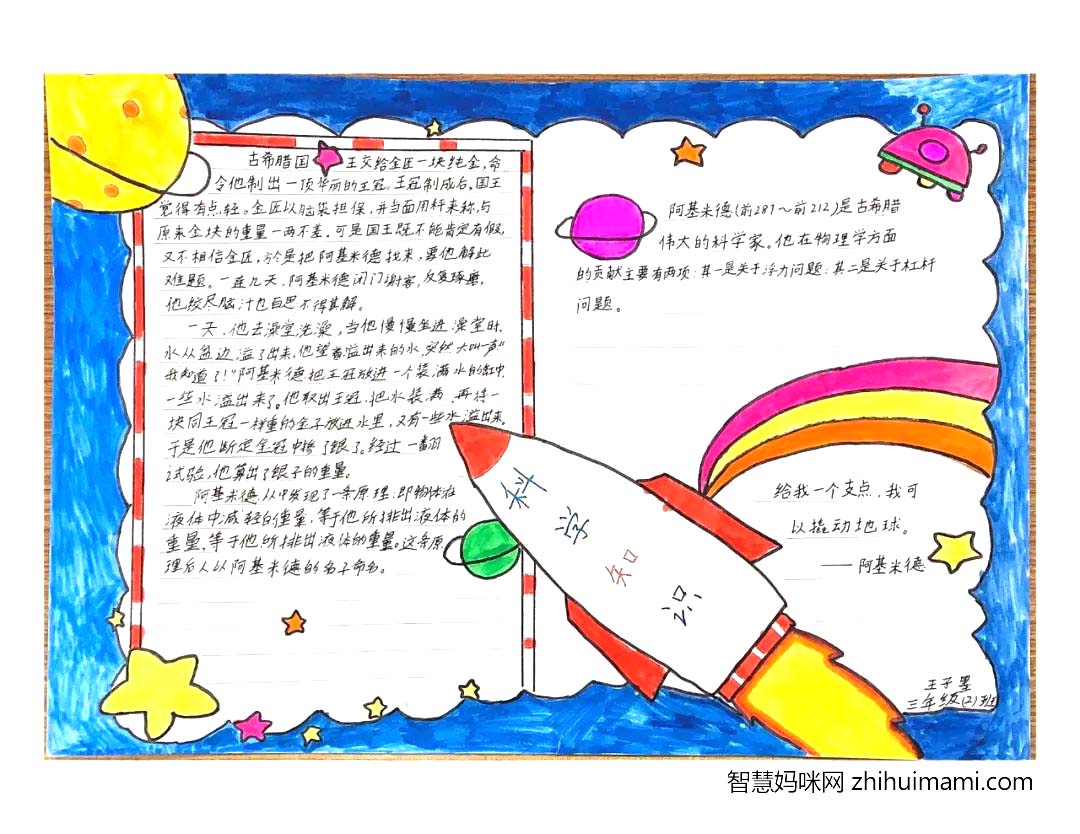 古希腊国王交给金匠一块纯金,命
令他制出一顶华丽的王冠。王冠制成后,国王
觉得有点轻。金匠以脑袋担保,并当面用秤来称,与
原来金块的重量一两不差。可是国王既不能肯定有假,
又不相信金匠,於是把阿基米德找来,要他解此
难题。一连几天,阿基米德闭门谢客,反复琢磨,
他绞尽脑汁也百思不得其解。
一天,他去澡堂洗澡,当他慢慢坐进澡堂时,
水从盆边溢了出来,他望着溢出来的水,突然大叫一声"
我知道了!"阿基米德把王冠放进一个装满水的缸中,
一些水溢出来了。他取出王冠,把水装满,再将一
块同王冠一样重的金子放进水里,又有一些水溢出来。
于是他断定金冠中掺了银了。经过一翻
试验,他算出了银子的重量。
阿基米德从中发现了一条原理:即物体在
液体中减轻的重量,等于他所排出液体的
重量,等于他所排出液体的重量。这条原
理后人以阿基米德的名子命名。
阿基米德(前287~前212)是古希腊
伟大的科学家。他在物理学方面
的贡献主要有两项:其一是关于浮力问题;其二是关于杠杆
问题。
科学知识
给我一个支点,我可
以撬动地球。
——阿基米德
王子墨
三年级(2)班
智慧妈咪网 zhihuimami.com